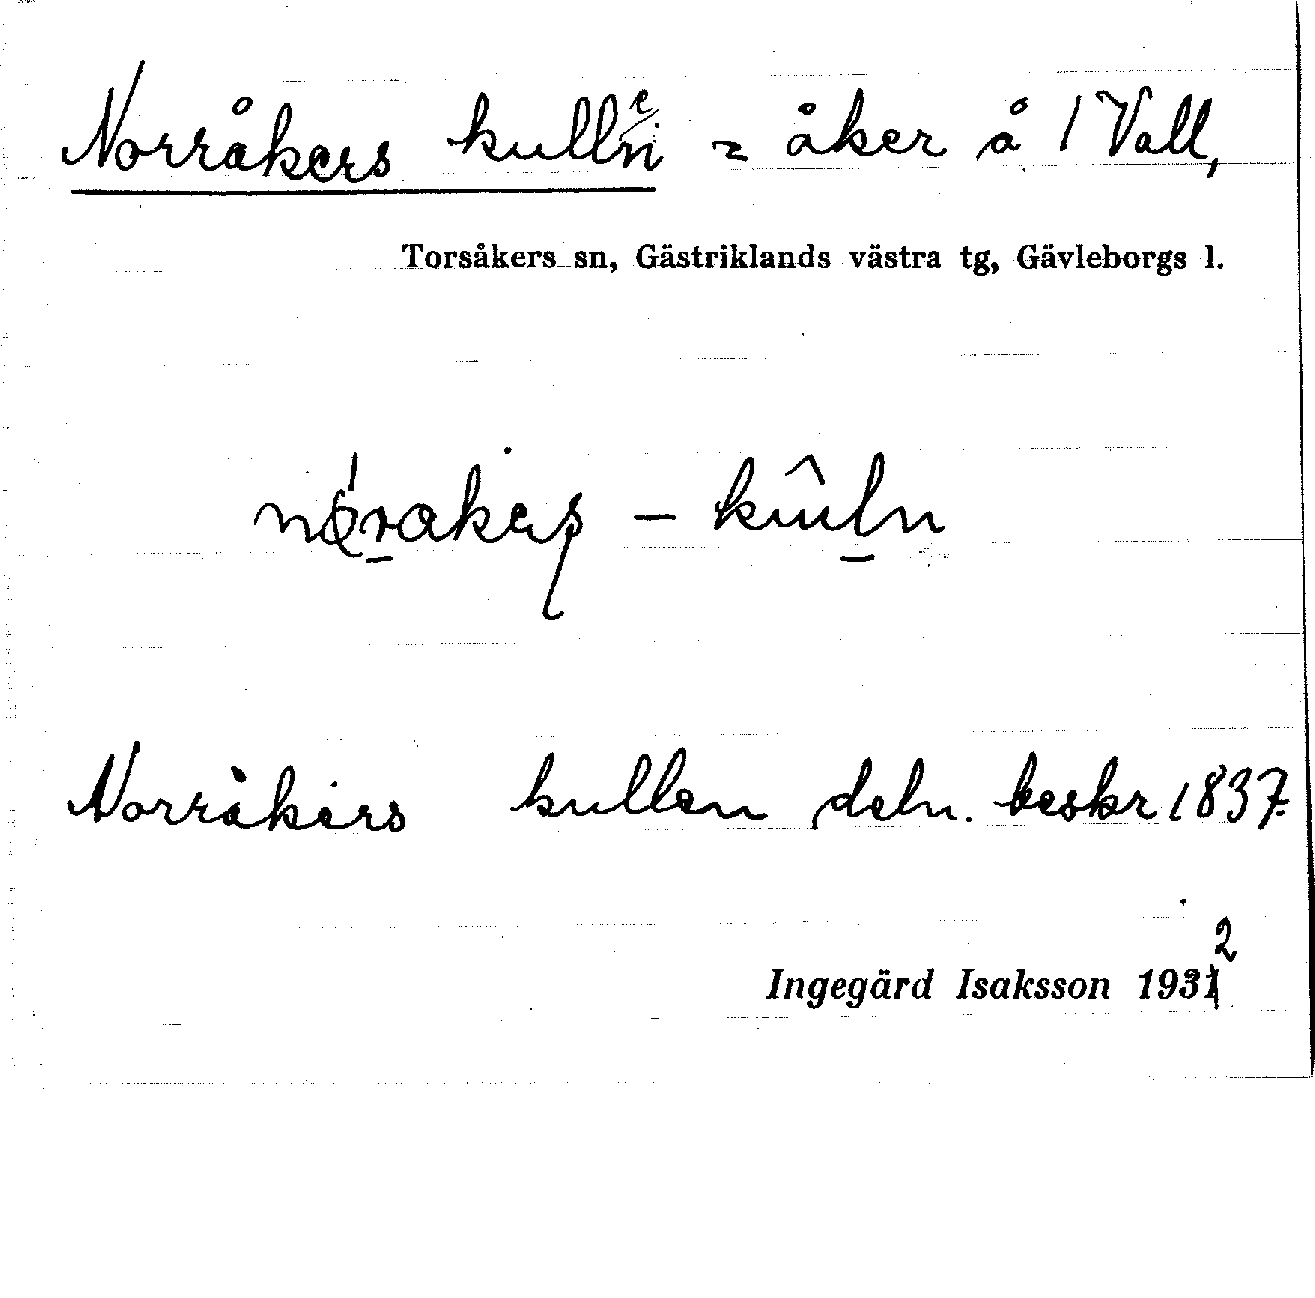 Norråkers kullen = åker å 1 Vall,
Torsåkers sn, Gästriklands västra tg, Gävleborgs l.
Norråkers kullen deln. beskr 1837.
Ingegärd Isaksson 1932